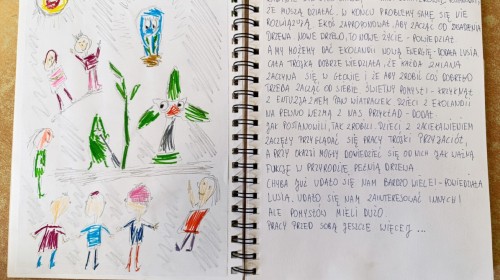 ŻE MUSZĄ DZIAŁAĆ. W KOŃCU PROBLEMY SAME SIĘ NIE
ROZWIĄŻĄ. EKOŚ ZAPROPONOWAŁ, ABY ZACZĄĆ OD SADZENIA
DRZEW. NOWE DRZEWO, TO NOWE ŻYCIE - POWIEDZIAŁ
A MY MOŻEMY DAĆ EKOLANDII NOWĄ ENERGIĘ - DODAŁA LUSIA.
CAŁA TRÓJKA DOBRZE WIEDZIAŁA, ŻE KAŻDA ZMIANA
ZACZYNA SIĘ W GŁOWIE I ŻE ABY ZROBIĆ COŚ DOBREGO
TRZEBA ZACZĄĆ OD SIEBIE. ŚWIETNY POMYSŁ - KRZYKNĄŁ
Z ENTUZJAZMEM PAN WIATRACZEK. DZIECI Z EKOLANDII
NA PEWNO WEZMĄ Z NAS PRZYKŁAD - DODAŁ.
JAK POSTANOWILI, TAK ZROBILI. DZIECI Z ZACIEKAWIENIEM
ZACZĘŁY PRZYGLĄDAĆ SIĘ PRACY TRÓJKI PRZYJACIÓŁ,
A PRZY OKAZJI MOGŁY DOWIEDZIEĆ SIĘ OD NICH JAK WAŻNĄ
FUNKCJĘ W PRZYRODZIE PEŁNIĄ DRZEWA.
CHYBA JUŻ UDAŁO SIĘ NAM BARDZO WIELE! - POWIEDZIAŁA
LUSIA. UDAŁO SIĘ NAM ZAINTERESOWAĆ INNYCH!
ALE POMYSŁÓW MIELI DUŻO
PRACY PRZED SOBĄ JESZCZE WIĘCEJ ...